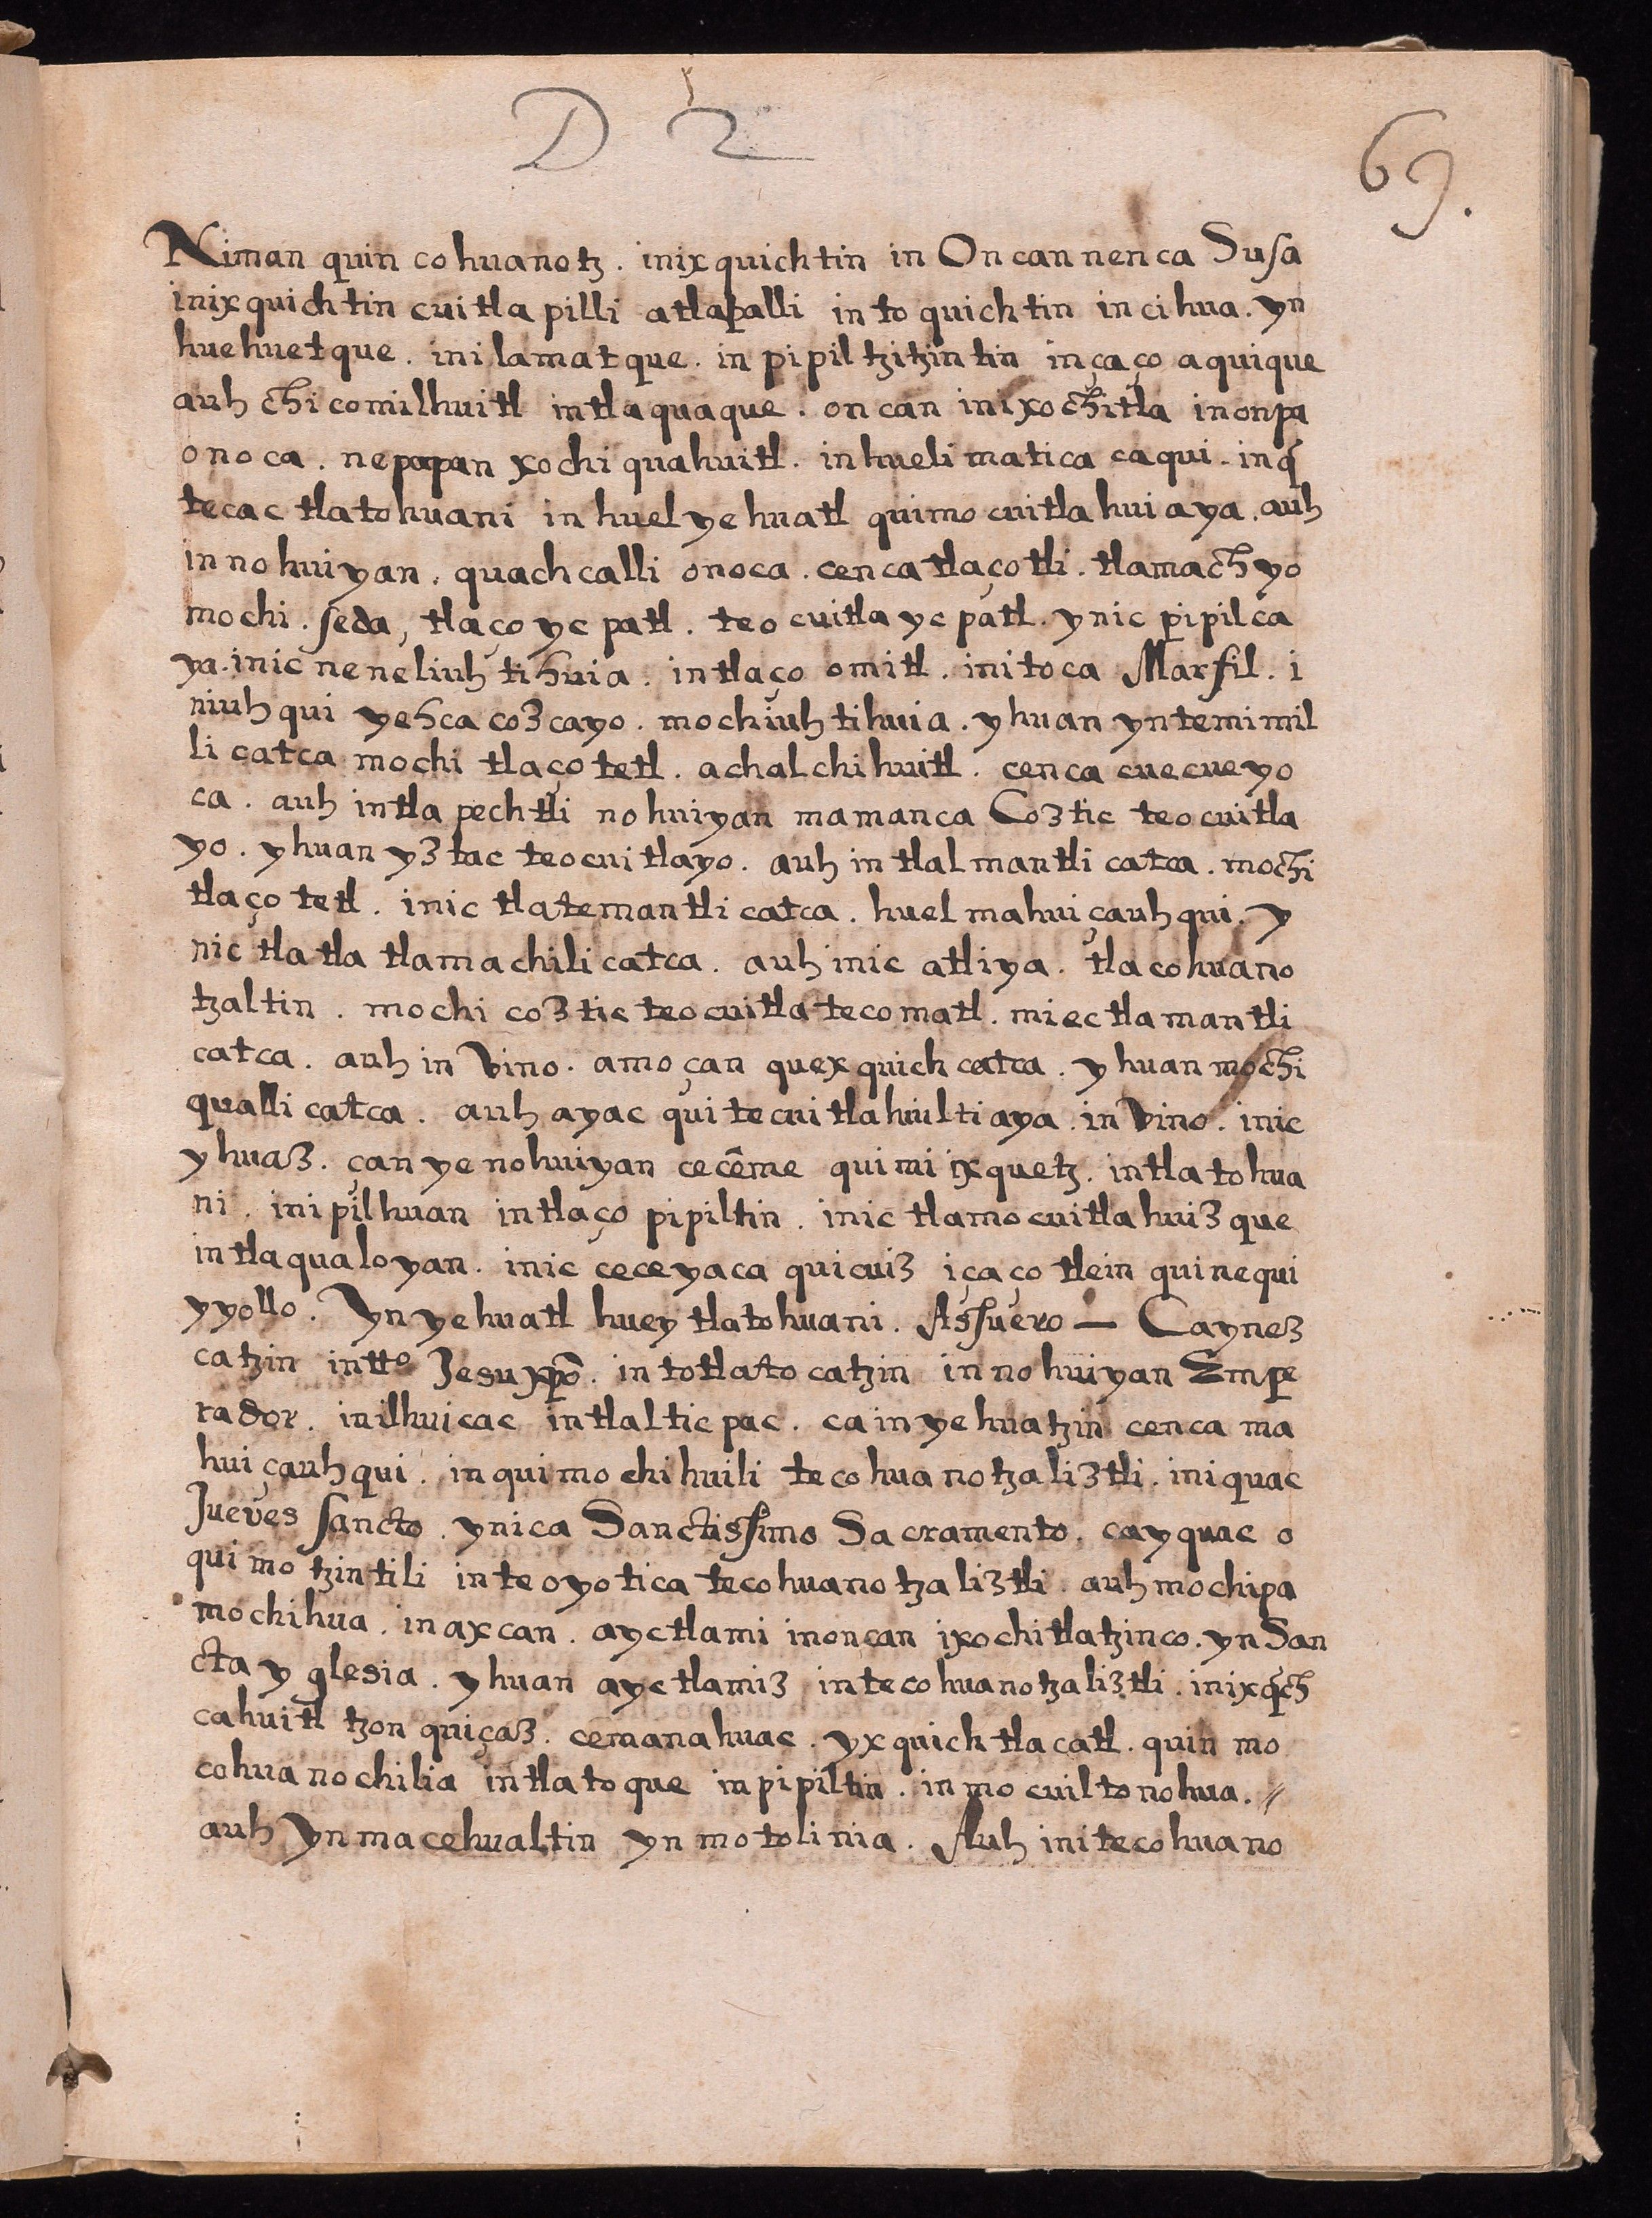 D 2
69.
Niman quin cohuanotz. inixquichtin in Oncan nenca Susa
inixquichtin cuitlapilli atlapalli in toquichtin in cihua. yn
huehuetque. in ilamatque. in pipiltzitzintin in çaço aquique
auh chicomilhuitl in tlaquaque. oncan in ixochitla in onpa
onoca. nepapan xochiquahuitl. in huelimatica caqui. inq̃
tecac tlatohuani in huel yehuatl quimocuitlahuiaya. auh
in nohuiyan. quachcalli onoca. cenca tlaçotli. tlamachyo
mochi. seda, tlaço ycpatl. teocuitla ycpatl. ynic pipilca
ya. inic neneliuhtihuia. in tlaço omitl. in itoca Marfil. i
niuhqui yehca cozcayo. mochiuhtihuia. yhuan yn temimil
li catca mochi tlaçotetl. achalchihuitl. cenca cuecueyo
ca. auh in tlapechtli nohuiyan mamanca Coztic teocuitla
yo. yhuan yztac teocuitlayo. auh in tlalmantli catca. mochi
tlaçotetl. inic tlatemantli catca. huel mahuiçauhqui. y
nic tlatlatlamachili catca. auh inic atliya. tlacohuano
tzaltin. mochi coztic teocuitlatecomatl. miectlamantli
catca. auh in Vino. amo çan quexquich catca. yhuan mochi
qualli catca. auh ayac quitecuitlahuiltiaya. in Vino. inic
yhuaz. çan ye nohuiyan cecẽme quimixquetz. in tlatohua
ni. in ipilhuan in tlaço pipiltin. inic tlamocuitlahuizque
in tlaqualoyan. inic ceceyaca quicuiz içaço tlein quinequi
yyollo. Yn yehuatl huey tlatohuani. Assuero — Ca ynez
catzin in tto Jesu xp̃o. in totlatocatzin in nohuiyan Empe
rador. in ilhuicac in tlalticpac. ca in yehuatzin cenca ma
huiçauhqui. in quimochihuili tecohuanotzaliztli. in iquac
Jueves sancto. yn ica Sanctissimo Sacramento. ca yquac o
quimotzintili in teoyotica tecohuanotzaliztli. auh mochipa
mochihua. in axcan. ayc tlami in oncan ixochitlatzinco. yn San
cta yglesia. yhuan ayc tlamiz in tecohuanotzaliztli. in ixq̃ch
cahuitl tzonquiçaz. cemanahuac. yxquich tlacatl. quinmo
cohuanochilia in tlatoque in pipiltin. in mocuiltonohua. //
auh yn macehualtin yn motolinia. Auh in itecohuano